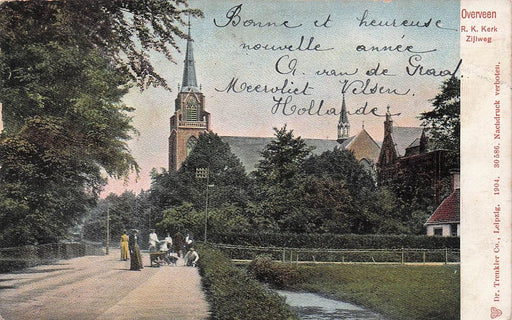 Bonne et heureuse
nouvelle année
A. van de Graaf.
Meervliet Velsen.
Hollande
Overveen
R. K. Kerk
Zijlweg
Dr. Trenkler Co., Leipzig. 1904. 30 586. Nachdruck verboten.